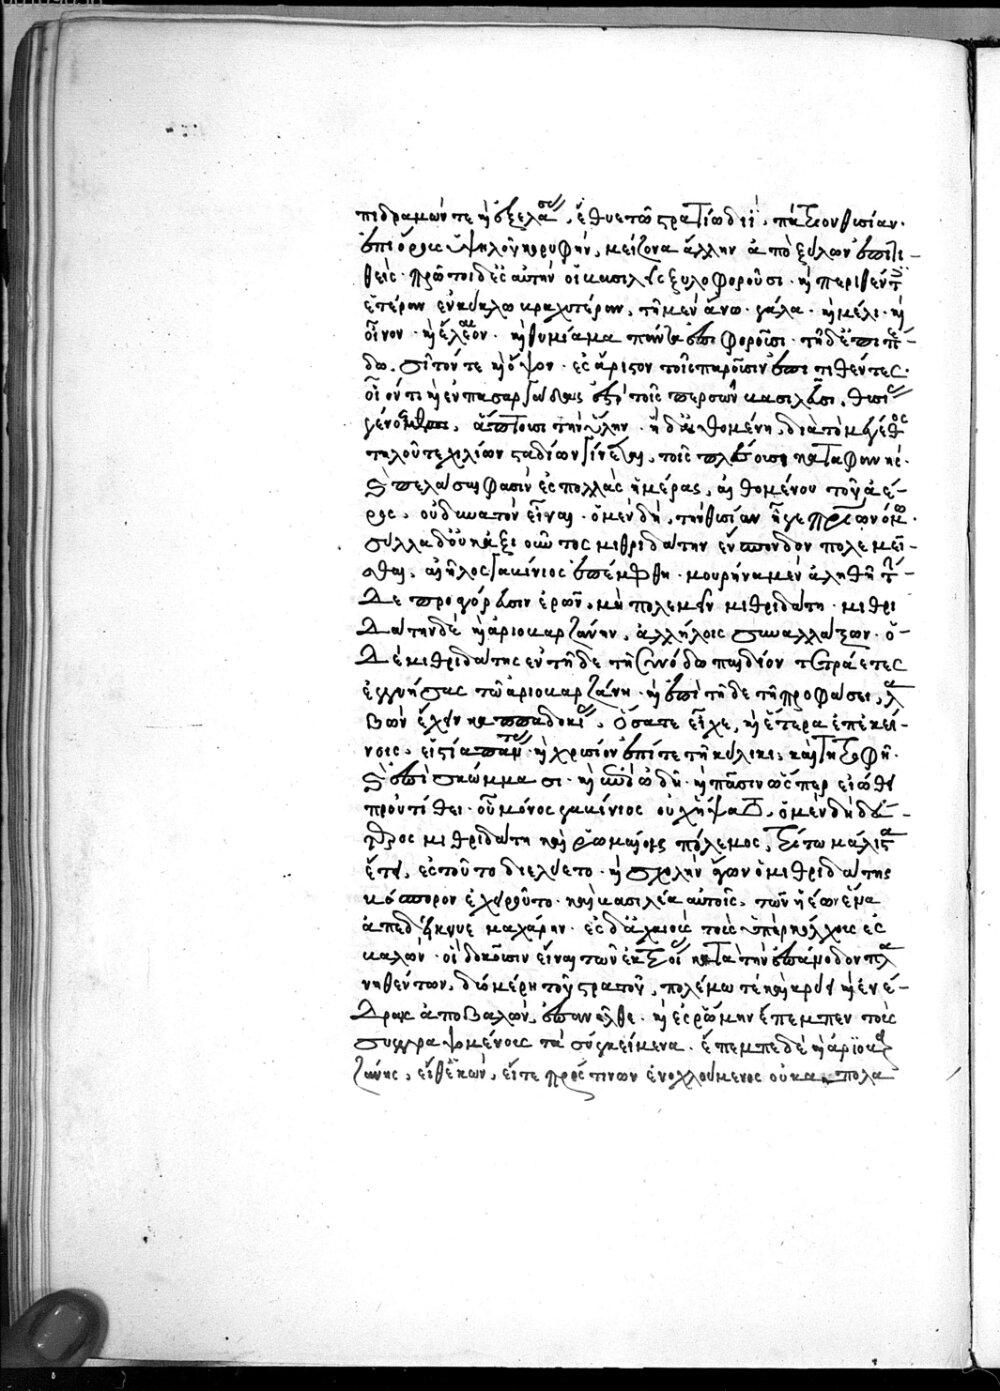 πιδραμών τε καὶ ἐξελάσας, ἔθυε τῶ στρατίω διῒ, πάτριον θυσίαν.
ἐπὶ ὄρους ὑψηλοῦ κορυφὴν, μείζονα ἄλλην ἀπὸ ξύλων ἐπιτι-
θείς· πρῶτοι δ' ἐς αὐτὴν οἱ βασιλεῖς ξυλοφοροῦσι· καὶ περιθέντες
ἑτέραν ἐν κύκλω βραχυτέραν, τῆ μὲν ἄνω· γάλα· καὶ μέλι· καὶ
οἶνον· καὶ ἔλαιον· καὶ θυμιάματα πάντα ἐπιφοροῦσι· τῆ δ' ἐπιπέ-
δω. σῖτόν τε καὶ ὄψον· ἐς ἄριστον τοῖς παροῦσιν ἐπιτιθέντες.
οἷόν τι καὶ ἐν πασαργάδαις ἐστὶ τοῖς περσῶν βασιλεῦσι, θυσίας
γένος, ἅπτουσι τὴν ὕλην. ἡ δ' αἰθομένη, διὰ τὸ μέγεθος
τηλοῦ τε χιλίων σταδίων γίνεται, τοῖς πλέουσι καταφανής.
καὶ πελάσαι φασὶν ἐς πολλὰς ἡμέρας, αἰθομένου τοῦ ἀέ-
ρος, οὐ δυνατὸν εἶναι. ὁ μὲν δὴ, τὴν θυσίαν ἦγε πατρίω νόμω.
σύλλα δ' οὐκ ἀξιοῦντος μιθριδάτην ἔνσπονδον πολεμεῖ-
σθαι, αὖλος γαβίνιος ἐπέμφθη· μουρήνα μὲν ἀληθῆ τή-
δε προαγόρευσιν ἐρῶν, μὴ πολεμεῖν μιθριδάτη· μιθρι
δάτην δὲ καὶ ἀριοβαρζάνην, ἀλλήλοις συναλλάξων. ὁ-
δὲ μιθριδάτης ἐν τῆδε τῆ συνόδω παιδίον τετραετὲς
ἐγγυήσας τῶ ἀριοβαρζάνη· καὶ ἐπὶ τῆδε τῆ προφάσει, λα
βὼν ἔχειν καππαδοκίας, ὅσα τε εἶχε, καὶ ἕτερα ἐπ' ἐκεί-
νοις, εἱστία πάντας· καὶ χρυσίον ἐπί τε τῆ κύλικι, καὶ τῆ τροφῆ.
καὶ ἐπὶ σκώμμασι· καὶ ὠδῆ· καὶ πᾶσιν ὥσπερ εἰώθει
προὐτίθει· οὗ μόνος γαβίνιος οὐχ ἥψατο, ὁ μὲν δὴ δεύ-
τερος μιθριδάτη καὶ ῥωμαίοις πόλεμος, τρίτω μάλιστα
ἔτει, ἐς τοῦτο διελύετο. καὶ σχολὴν ἄγων ὁ μιθριδάτης
βόσπορον ἐχειροῦτο· καὶ βασιλέα αὐτοῖς, τῶν υἱέων ἕνα
ἀπεδείκνυε μαχάρην. ἐς δ' ἀχαιοὺς τοὺς ὑπὲρ κόλχους ἐς
βαλὼν· οἳ δοκοῦσιν εἶναι τῶν ἐκ τροίας κατὰ τὴν ἐπάνοδον πλα
νηθέντων, δύο μέρη τοῦ στρατοῦ, πολέμω τε καὶ κρύει καὶ ἐνέ-
δραις ἀποβαλὼν, ἐπανῆλθε· καὶ ἐς ῥώμην ἔπεμπεν τοὺς
συγγραψομένους τὰ συγκείμενα. ἔπεμπε δὲ καὶ ἀριοβαρ
ζάνης, εἴθ' ἑκὼν, εἴτε πρός τινων ἐνοχλούμενος οὐκ ἀπολα